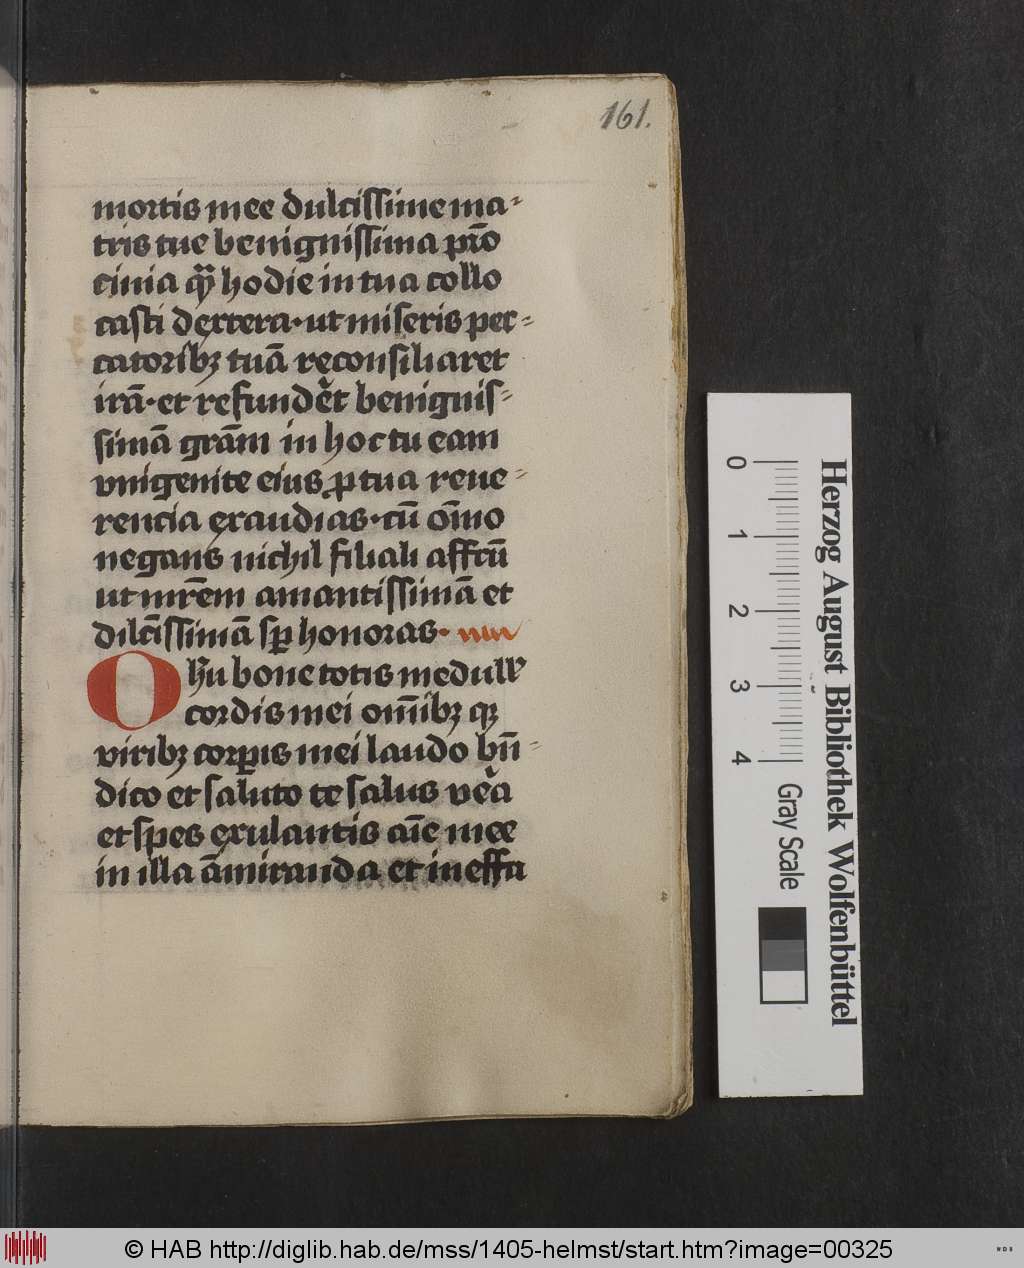 161.
mortis mee dulcissime ma-
tris tue benignissima pr̄o
cinia qm̄ hodie in tua collo
casti dextera·ut miseris pec-
catoribꝫ tuā reconsiliaret
irā·et refundēt benignis-
simā grām in hoc tu eam
vnigenite eius ꝓ tua reue-
rencia exaudias·cū om̄o
negans nichil filiali affc̄ū
ut mr̄em amantissimā et
dilc̄issimā sꝑ honoras·
O ih̄u bone totis medull̄
cordis mei om̄ibꝫ qꝫ
viribꝫ corꝑis mei laudo bn̄-
dico et saluto te salus vēa
et spes exulantis aīe mee
in illa āmiranda et ineffa
0 1 2 3 4
Gray Scale
Herzog August Bibliothek Wolfenbüttel
© HAB http://diglib.hab.de/mss/1405-helmst/start.htm?image=00325